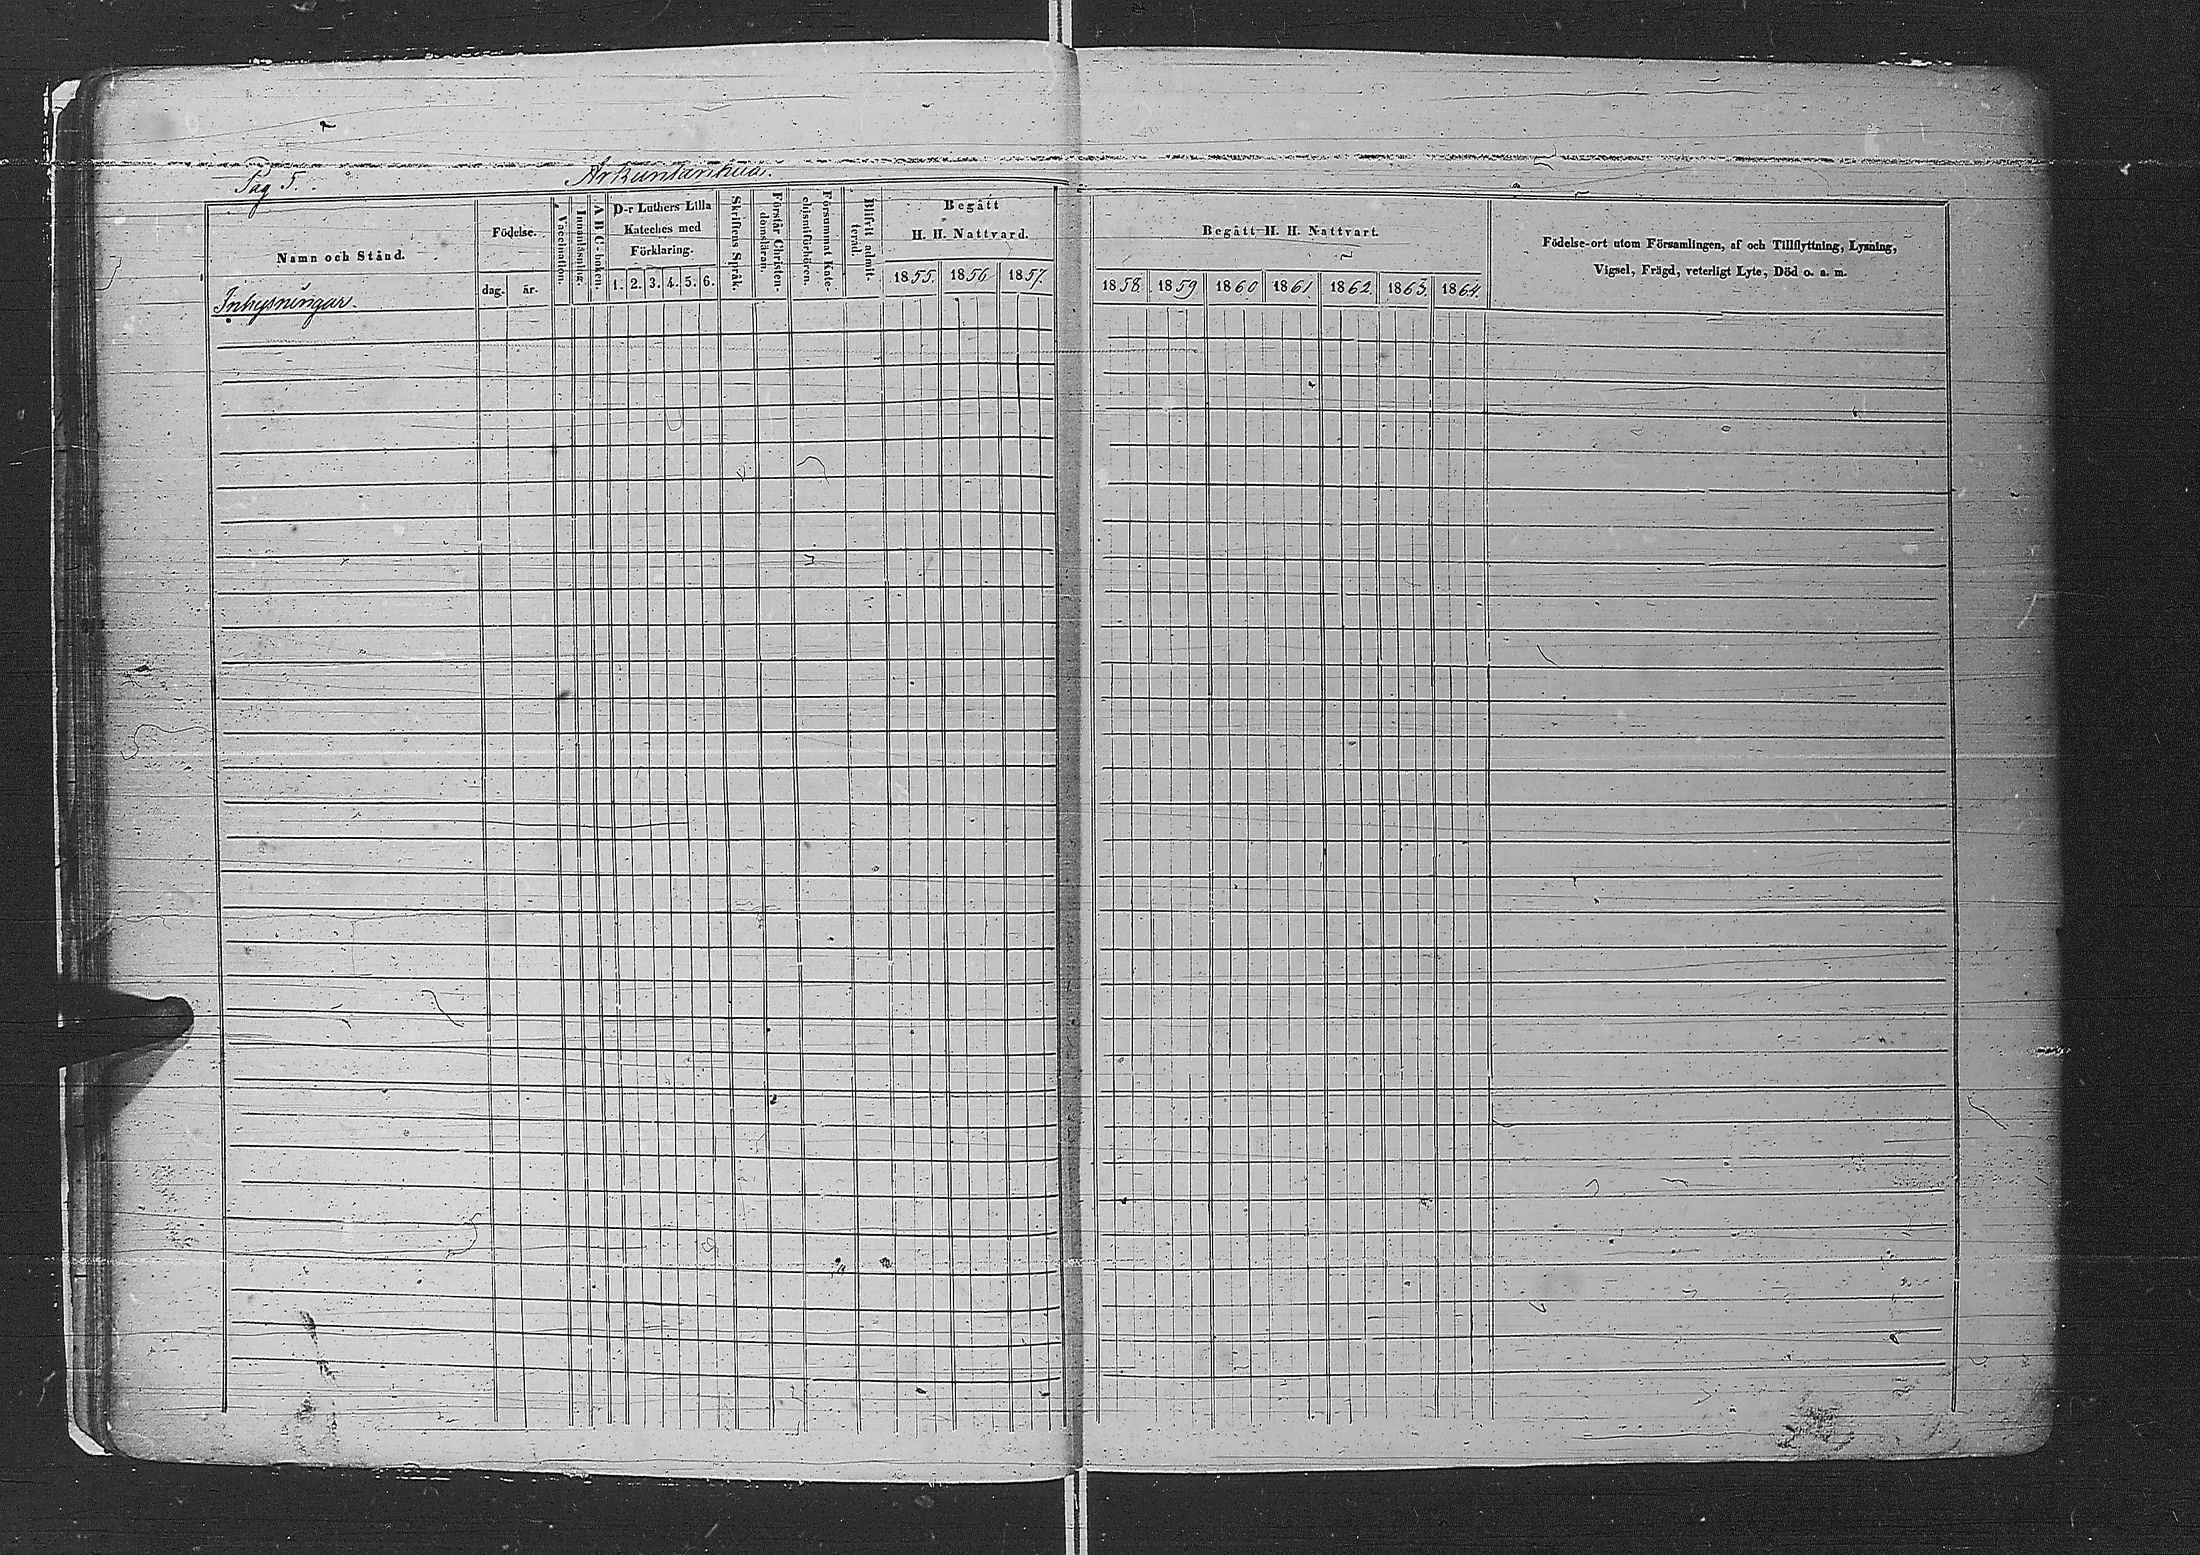 Pag 5.
Namn och Stånd.
Födelse.
dag.
år.
Vaccination.
Innanläsning.
A B C-boken.
D-r Luthers Lilla
Kateches med
Förklaring.
1. 2. 3. 4. 5. 6.
Skriftens Språk.
Förstår Christen-
domsläran.
Försummat Kate-
chismiförhören.
Blifvit admit-
terad.
Begått
H. H. Nattvard.
1855. 1856 1857.
Inhysningar.
Begått H. H. Nattvart.
1858. 1859 1860 1861 1862. 1863. 1864.
Födelse-ort utom Församlingen, af och Tillflyttning, Lysning,
Vigsel, Frägd, veterligt Lyte, Död o. a. m.